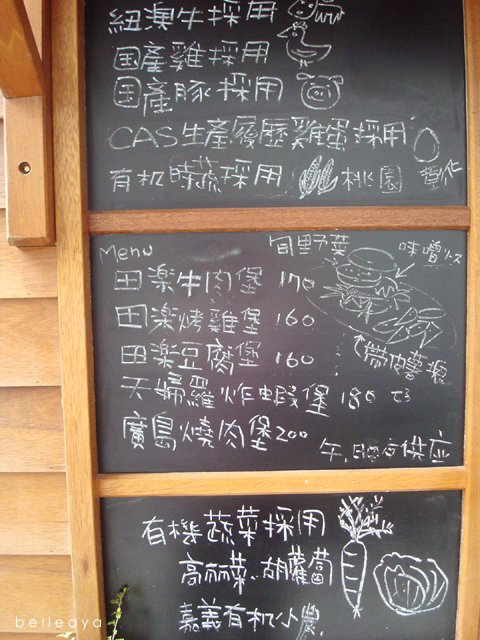 紐澳牛採用
国產雞採用
国產豚採用
CAS生產履歷雞蛋採用
有机時蔬採用 桃園 彰化
Menu
旬野菜
味噌ソース
田楽牛肉堡 170
田楽烤雞堡 160
田楽豆腐堡 160
天婦羅炸蝦堡 180
廣島燒肉堡 200
帶皮薯條
午、晚方供应
有機蔬菜採用
高丽菜、胡蘿蔔
嘉義有机小農
belleaya